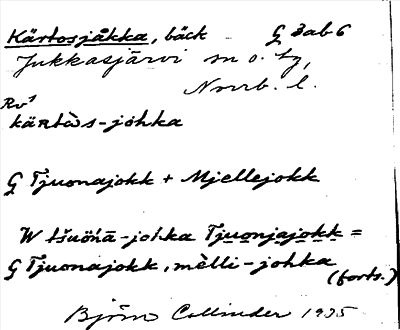 Kärtosjåkka, bäck G 3ab6
Jukkasjärvi sn o. tg,
Norrb. l.
Rv¹
kärtòs-johka
G Tjuonajokk + Mjellejokk
W tšuöńā-johka Tjuonjajokk =
G Tjuonajokk, mèlli-johka
(forts.)
Björn Collinder 1935